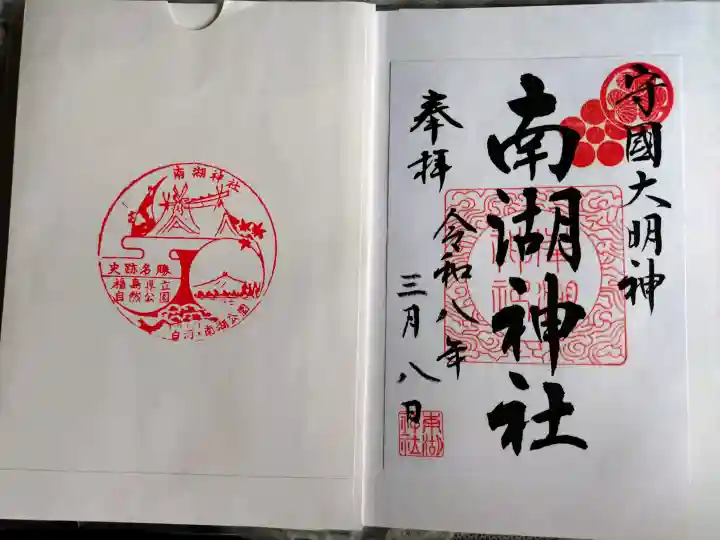 南湖神社
史跡名勝
福島県立
自然公園
白河・南湖公園
守國大明神
南湖神社
奉拝
令和八年
三月八日